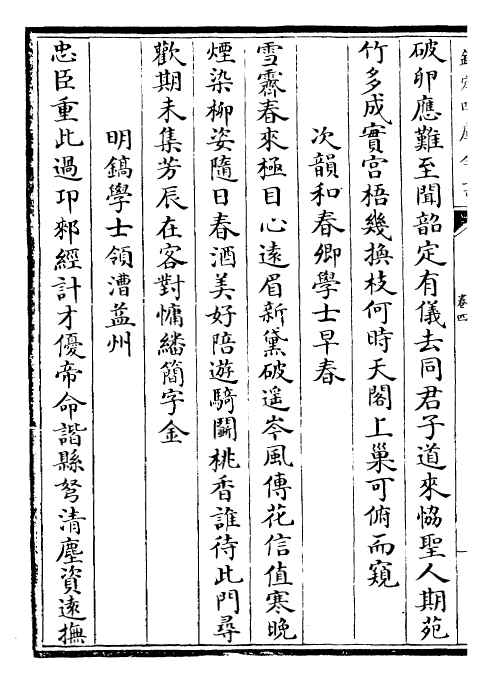 破卯應難至聞韶定有儀去同君子道來恊聖人期苑
竹多成實宫梧幾換枝何時天閣上巢可俯而窺
次韻和春卿學士早春
雪霽春來極目心逺眉新黛破遥岑風傳花信值寒晚
煙染柳姿隨日春酒美好陪遊騎鬬桃香誰待此門尋
歡期未集芳辰在客對慵繙簡字金
明鎬學士領漕益州
忠臣重此過卭郲經計才優帝命諧縣弩清塵資逺撫
卷四